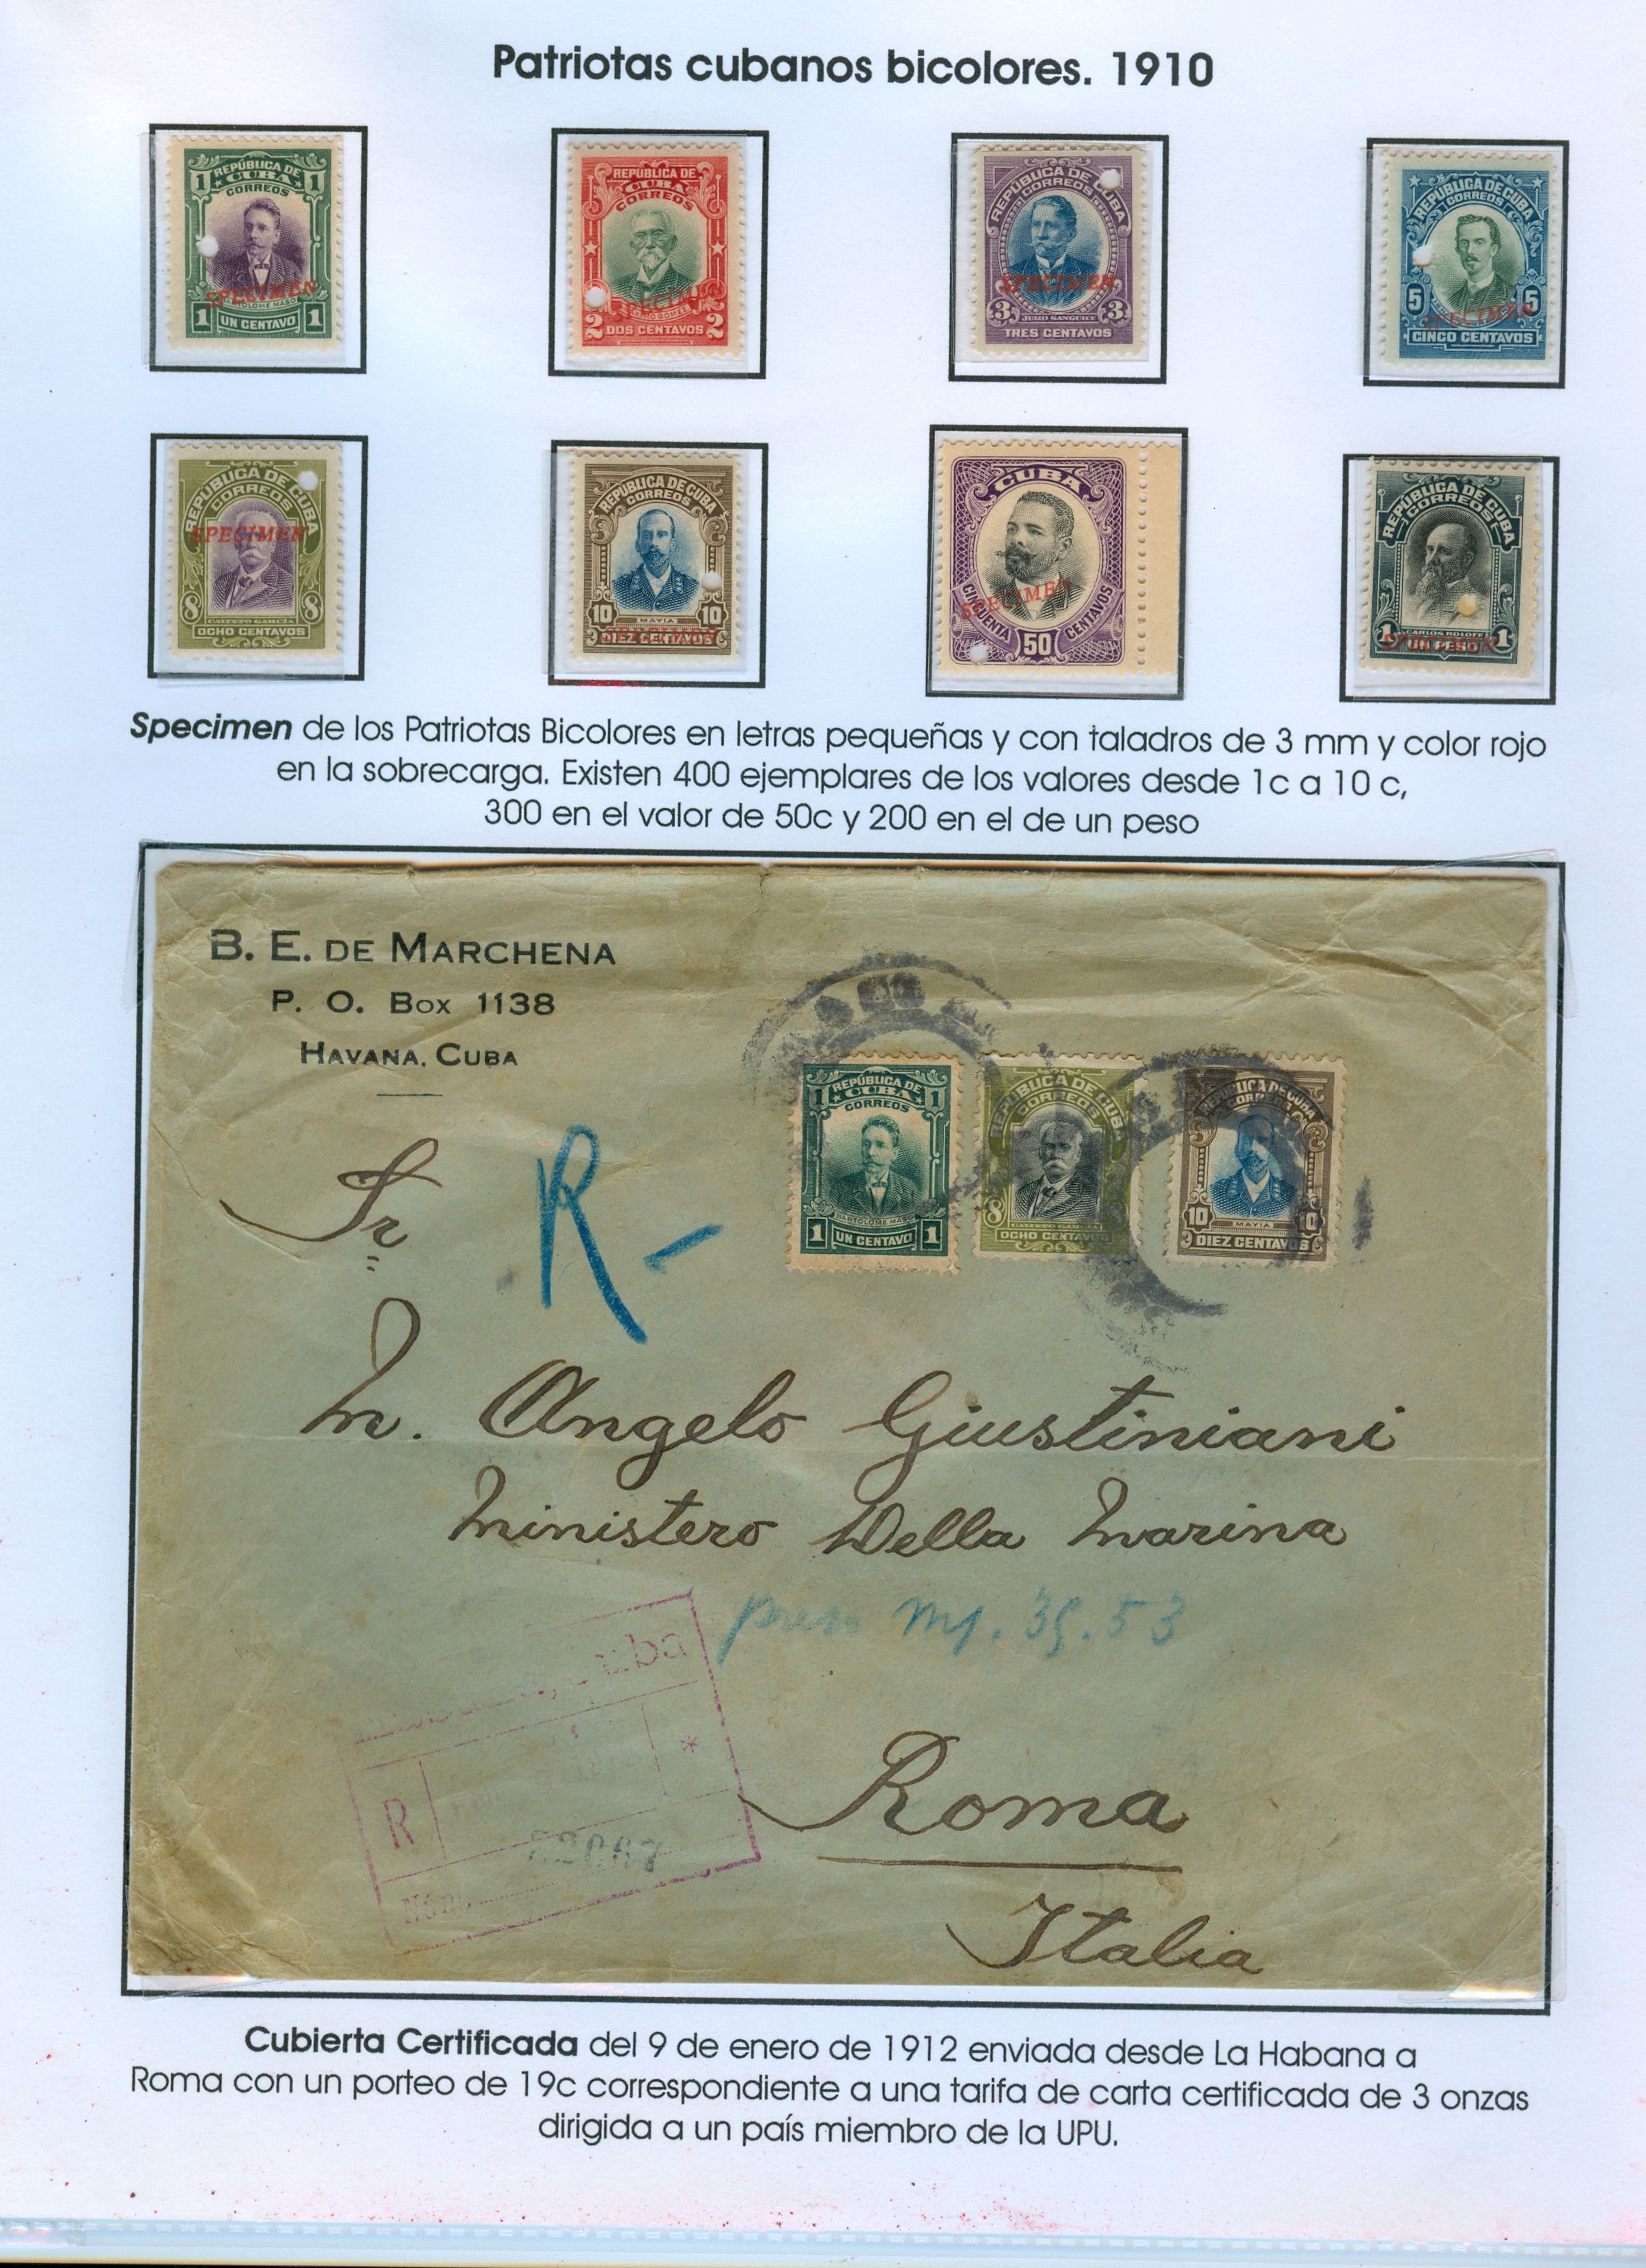 Patriotas cubanos bicolores. 1910
1 REPÚBLICA DE 1
CUBA
CORREOS
SPECIMEN
BARTOLOME MASO
1 UN CENTAVO 1
REPÚBLICA DE
CUBA
CORREOS
SPECIMEN
GOMEZ
2 DOS CENTAVOS 2
REPÚBLICA DE CUBA
CORREOS
SPECIMEN
3 JULIO SANGUILY 3
TRES CENTAVOS
REPÚBLICA DE CUBA
CORREOS
5 5
SPECIMEN
CINCO CENTAVOS
REPÚBLICA DE CUBA
CORREOS
SPECIMEN
8 CALIXTO GARCÍA 8
OCHO CENTAVOS
REPÚBLICA DE CUBA
CORREOS
10 MAYIA 10
SPECIMEN
DIEZ CENTAVOS
CUBA
SPECIMEN
CINCUENTA 50 CENTAVOS
REPÚBLICA DE CUBA
CORREOS
1 CARLOS ROLOFF 1
SPECIMEN
UN PESO
Specimen de los Patriotas Bicolores en letras pequeñas y con taladros de 3 mm y color rojo
en la sobrecarga. Existen 400 ejemplares de los valores desde 1c a 10 c,
300 en el valor de 50c y 200 en el de un peso
B. E. DE MARCHENA
P. O. BOX 1138
HAVANA, CUBA
1 REPÚBLICA DE 1
CUBA
CORREOS
BARTOLOME MASO
1 UN CENTAVO 1
REPÚBLICA DE CUBA
CORREOS
8 CALIXTO GARCÍA 8
OCHO CENTAVOS
REPÚBLICA DE CUBA
CORREOS
10 MAYIA 10
DIEZ CENTAVOS
Sr
R -
M. Angelo Giustiniani
Ministero Della Marina
39.53
Cuba
R
*
Roma
Italia
Cubierta Certificada del 9 de enero de 1912 enviada desde La Habana a
Roma con un porteo de 19c correspondiente a una tarifa de carta certificada de 3 onzas
dirigida a un país miembro de la UPU.